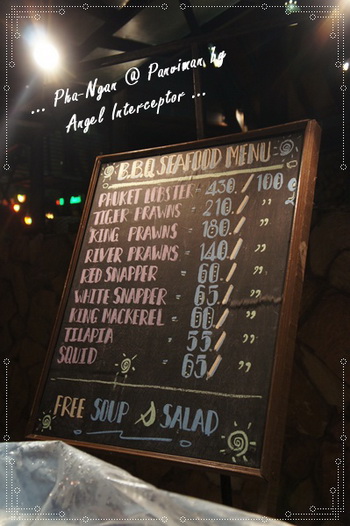 ... Pha-Ngan @ Panviman by
Angel Interceptor ...
B.B.Q SEAFOOD MENU
PHUKET LOBSTER = 430./100 g
TIGER PRAWNS = 210./ "
KING PRAWNS = 180./ "
RIVER PRAWNS = 140./ "
RED SNAPPER = 60./ "
WHITE SNAPPER = 65./ "
KING MACKEREL = 60./ "
TILAPIA = 55/ "
SQUID = 65/ "
FREE SOUP & SALAD